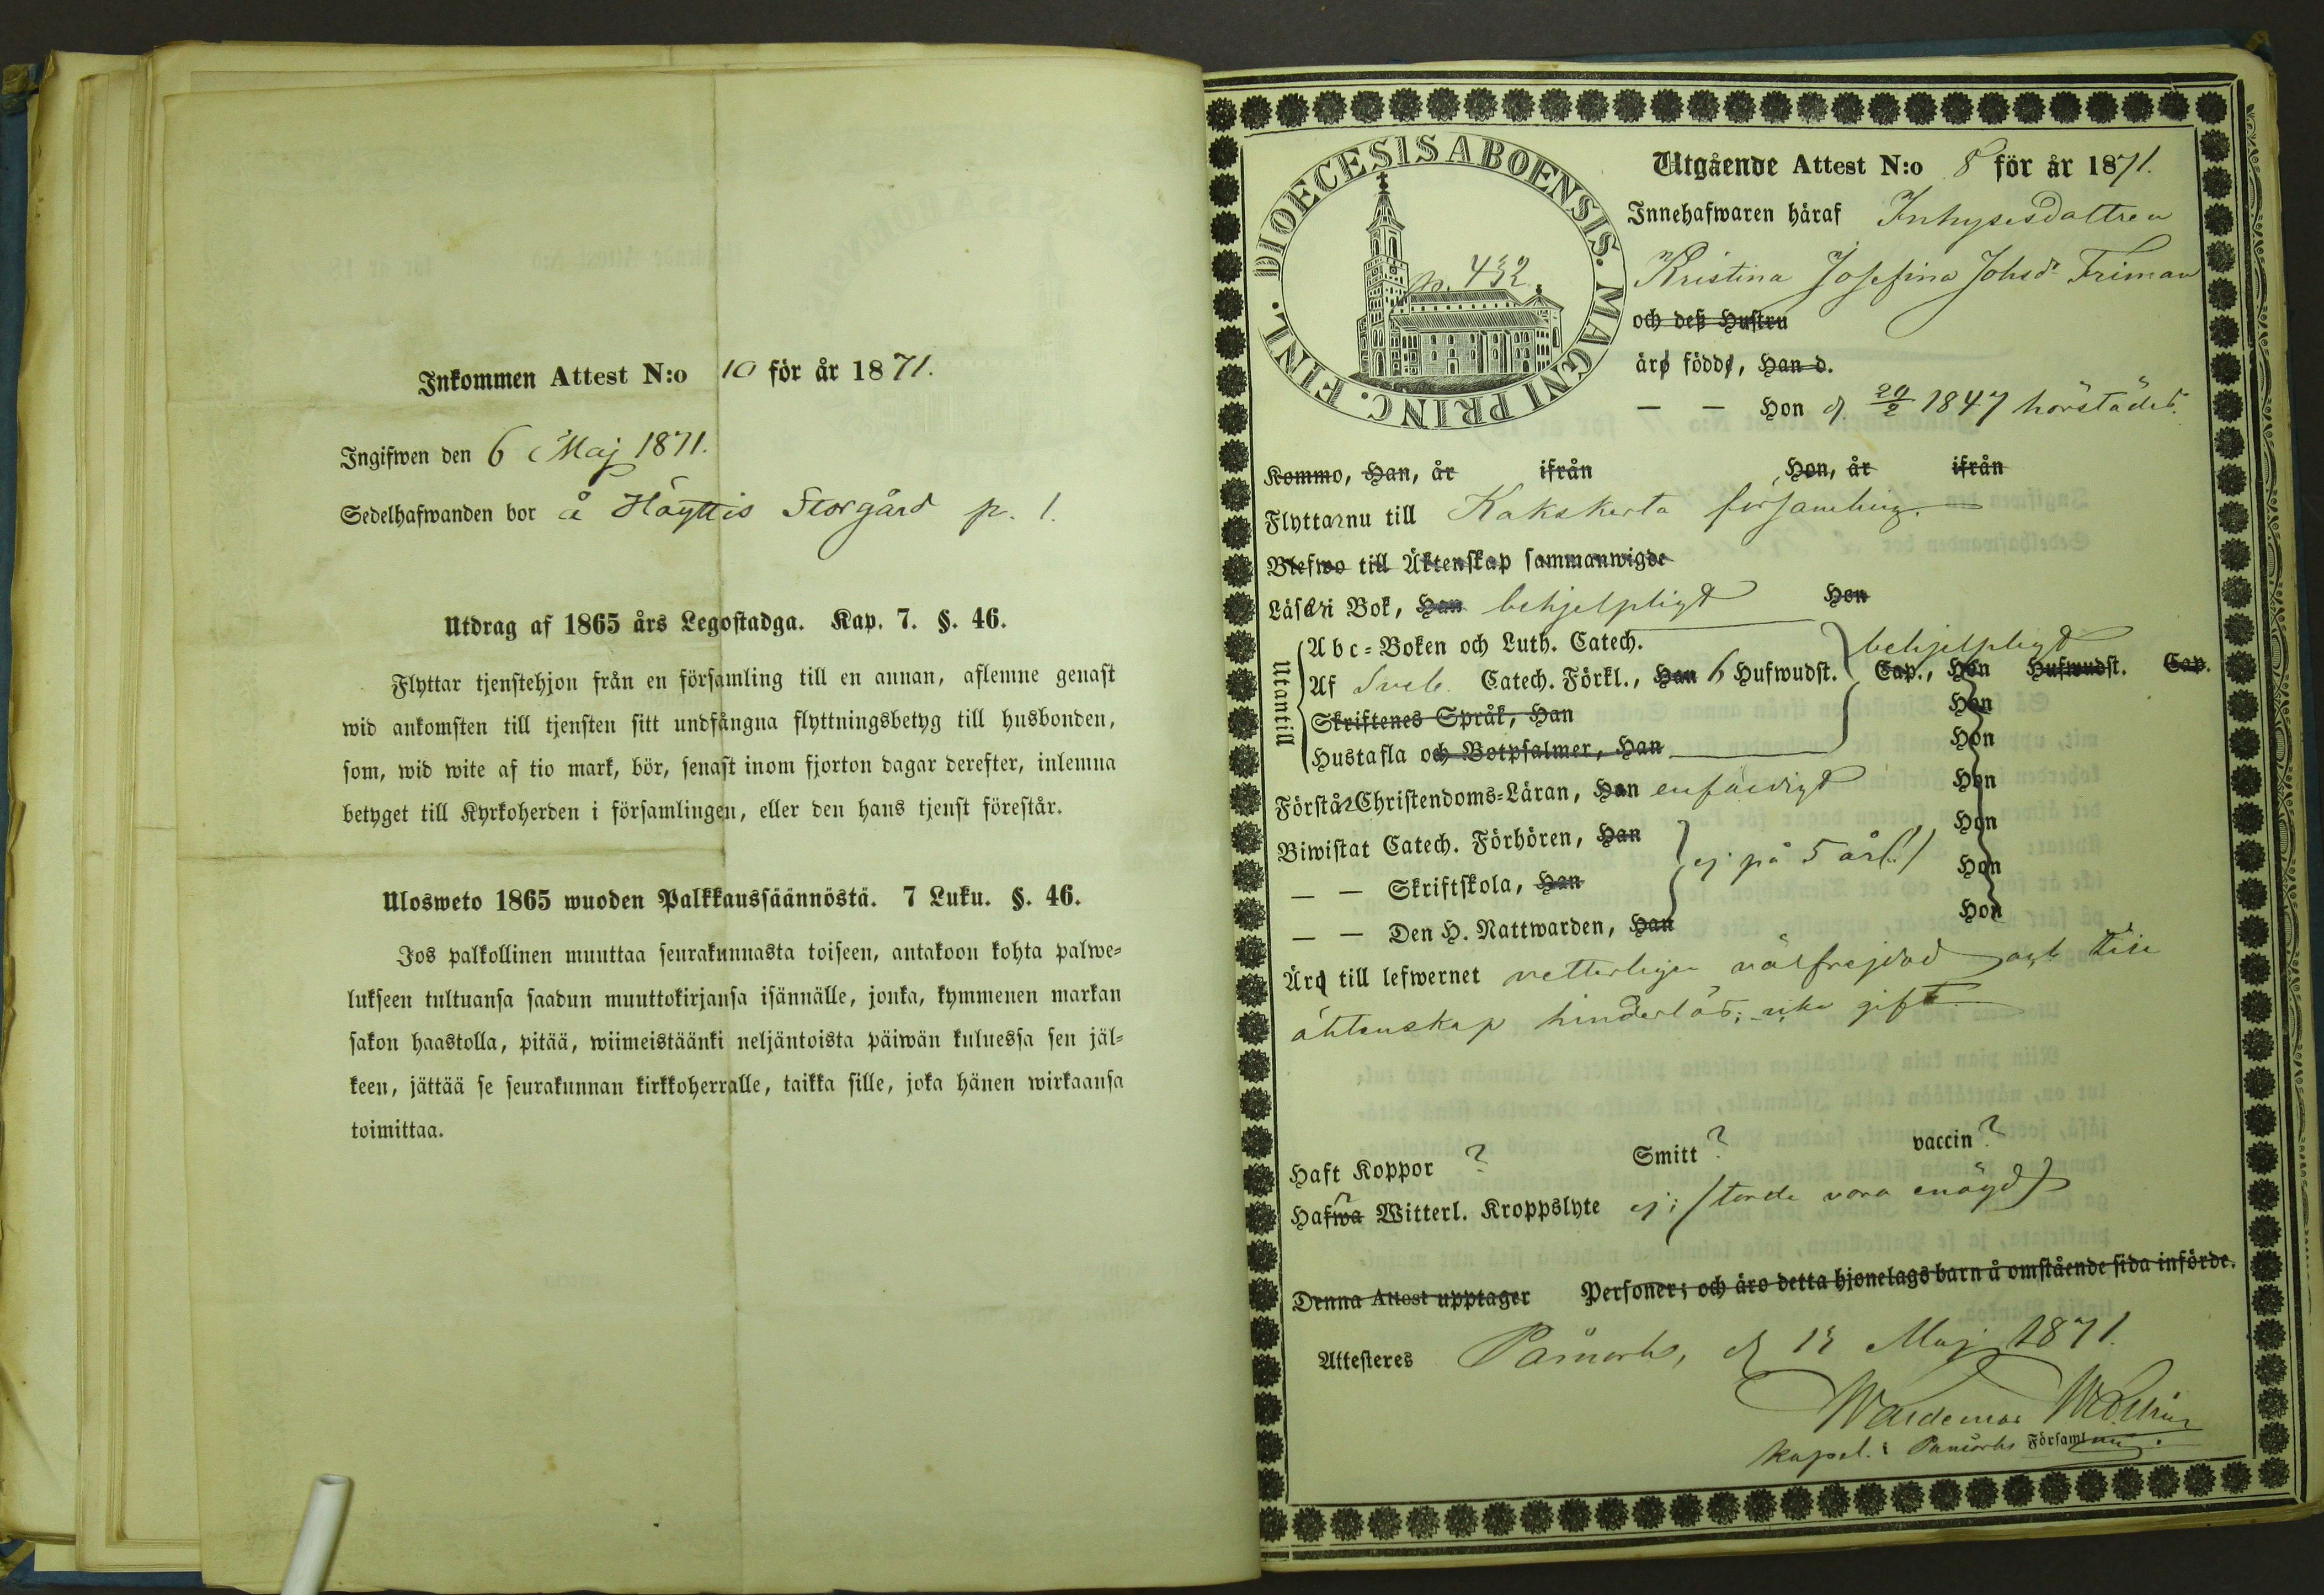 Inkommen Attest N:o 10 för år 1871.
Ingifwen den 6 Maj 1871.
Sedelhafwanden bor å Höyttis Storgård p. 1.
Utdrag af 1865 års Legostadga. Kap. 7. §. 46.
Flyttar tjenstehjon från en församling till en annan, aflemne genast
wid ankomsten till tjensten sitt undfångna flyttningsbetyg till husbonden,
som, wid wite af tio mark, bör, senast inom fjorton dagar derefter, inlemna
betyget till Kyrkoherden i församlingen, eller den hans tjenst förestår.
Ulosweto 1865 wuoden Palkkaussäännöstä. 7 Luku. §. 46.
Jos palkollinen muuttaa seurakunnasta toiseen, antakoon kohta palwe-
lukseen tultuansa saadun muuttokirjansa isännälle, jonka, kymmenen markan
sakon haastolla, pitää, wiimeistäänki neljäntoista päiwän kuluessa sen jäl-
keen, jättää se seurakunnan kirkkoherralle, taikka sille, joka hänen wirkaansa
toimittaa.
DIOECESIS ABOENSIS. MAGNI PRINC. FINL.
p. 432
Utgående Attest N:o 8 för år 1871.
Innehafwaren häraf Inhysesdottren
Kristina Josefina Johsdr Friman
och deß Hustru
äro födde, Han d.
— — Hon d. 20/2 1847 härstädes.
Kommo, Han, år ifrån Hon, år ifrån
Flyttar nu till Kakskerta församling.
Blefwo till Äktenskap sammanwigde
Läser i Bok, Han behjelpligt Hon
Utantill
Abc-Boken och Luth. Catech. behjelpligt
Af Sveb. Catech. Förkl., Han 6 Hufwudst. Cap., Hon Hufwudst. Cap.
Skriftenes Språk, Han Hon
Hustafla och Botpsalmer, Han Hon
Förstår Christendoms-Läran, Han enfaldigt Hon
Biwistat Catech. Förhören, Han ej på 5 år(!) Hon
— — Skriftskola, Han Hon
— — Den H. Nattwarden, Han Hon
Äro till lefwernet vetterligen välfrejdad och till
äktenskap hinderlös; icke gift.
Haft Koppor ? Smitt ? vaccin ?
Hafwa Witterl. Kroppslyte ej; (torde vara enögd)
Denna Attest upptager Personer; och äro detta hjonelags barn å omstående sida införde.
Attesteres Påmark, d. Maj 1871.
Waldemar
Kapel. i Påmarks Församling.